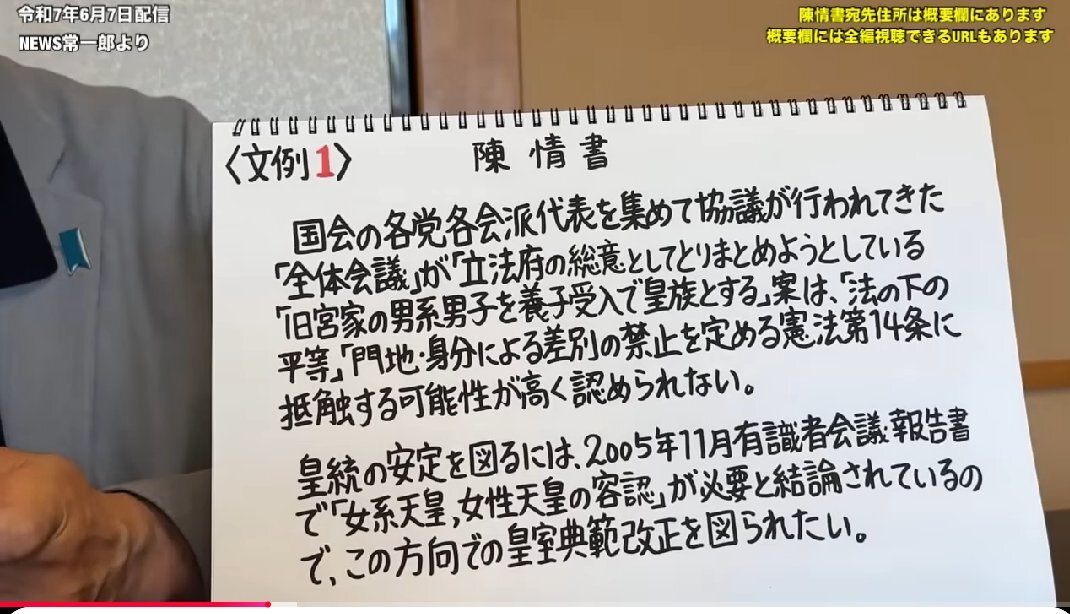 令和7年6月7日配信
NEWS常一郎より
陳情書宛先住所は概要欄にあります
概要欄には全編視聴できるURLもあります
〈文例1〉 陳情書
国会の各党各会派代表を集めて協議が行われてきた
「全体会議」が「立法府の総意としてとりまとめようとしている
「旧宮家の男系男子を養子受入で皇族とする」案は、「法の下の
平等」「門地・身分による差別の禁止を定める憲法第14条に
抵触する可能性が高く認められない。
皇統の安定を図るには、2005年11月有識者会議報告書
で「女系天皇,女性天皇の容認」が必要と結論されているの
で、この方向での皇室典範改正を図られたい。